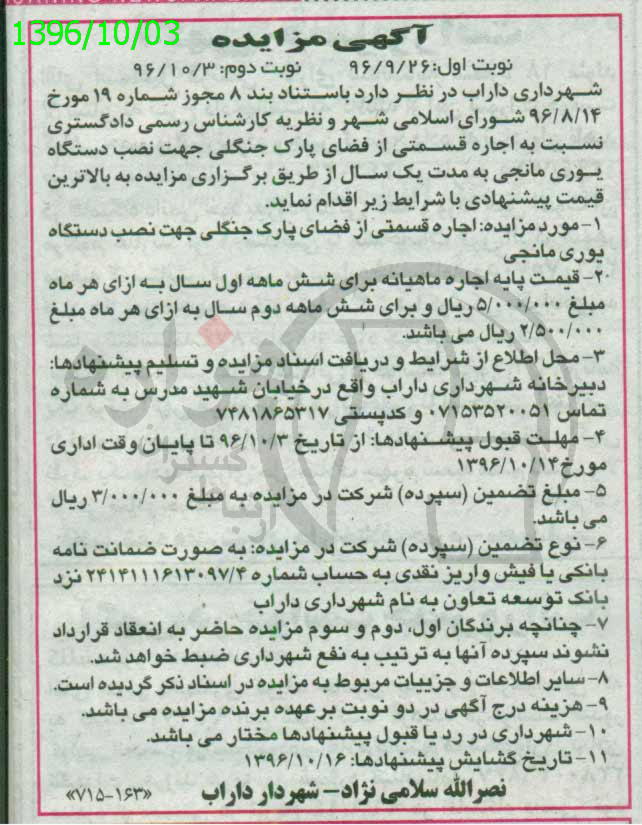 1396/10/03
آگهی مزایده
نوبت اول: ۹۶/۹/۲۶ نوبت دوم: ۹۶/۱۰/۳
شهرداری داراب در نظر دارد باستناد بند ۸ مجوز شماره ۱۹ مورخ
۹۶/۸/۱۴ شورای اسلامی شهر و نظریه کارشناس رسمی دادگستری
نسبت به اجاره قسمتی از فضای پارک جنگلی جهت نصب دستگاه
یوری مانجی به مدت یک سال از طریق برگزاری مزایده به بالاترین
قیمت پیشنهادی با شرایط زیر اقدام نماید.
۱- مورد مزایده: اجاره قسمتی از فضای پارک جنگلی جهت نصب دستگاه
یوری مانجی
۲- قیمت پایه اجاره ماهیانه برای شش ماهه اول سال به ازای هر ماه
مبلغ ۵/۰۰۰/۰۰۰ ریال و برای شش ماهه دوم سال به ازای هر ماه مبلغ
۲/۵۰۰/۰۰۰ ریال می باشد.
۳- محل اطلاع از شرایط و دریافت اسناد مزایده و تسلیم پیشنهادها:
دبیرخانه شهرداری داراب واقع در خیابان شهید مدرس به شماره
تماس ۰۷۱۵۳۵۲۰۰۵۱ و کدپستی ۷۴۸۱۸۶۵۳۱۷
۴- مهلت قبول پیشنهادها: از تاریخ ۹۶/۱۰/۳ تا پایان وقت اداری
مورخ ۱۳۹۶/۱۰/۱۴
۵- مبلغ تضمین (سپرده) شرکت در مزایده به مبلغ ۳/۰۰۰/۰۰۰ ریال
می باشد.
۶- نوع تضمین (سپرده) شرکت در مزایده: به صورت ضمانت نامه
بانکی یا فیش واریز نقدی به حساب شماره ۲۴۱۴۱۱۱۶۱۳۰۹۷/۴ نزد
بانک توسعه تعاون به نام شهرداری داراب
۷- چنانچه برندگان اول، دوم و سوم مزایده حاضر به انعقاد قرارداد
نشوند سپرده آنها به ترتیب به نفع شهرداری ضبط خواهد شد.
۸- سایر اطلاعات و جزییات مربوط به مزایده در اسناد ذکر گردیده است.
۹- هزینه درج آگهی در دو نوبت بر عهده برنده مزایده می باشد.
۱۰- شهرداری در رد یا قبول پیشنهادها مختار می باشد.
۱۱- تاریخ گشایش پیشنهادها: ۱۳۹۶/۱۰/۱۶
نصرالله سلامی نژاد- شهردار داراب «۷۱۵-۱۶۳»